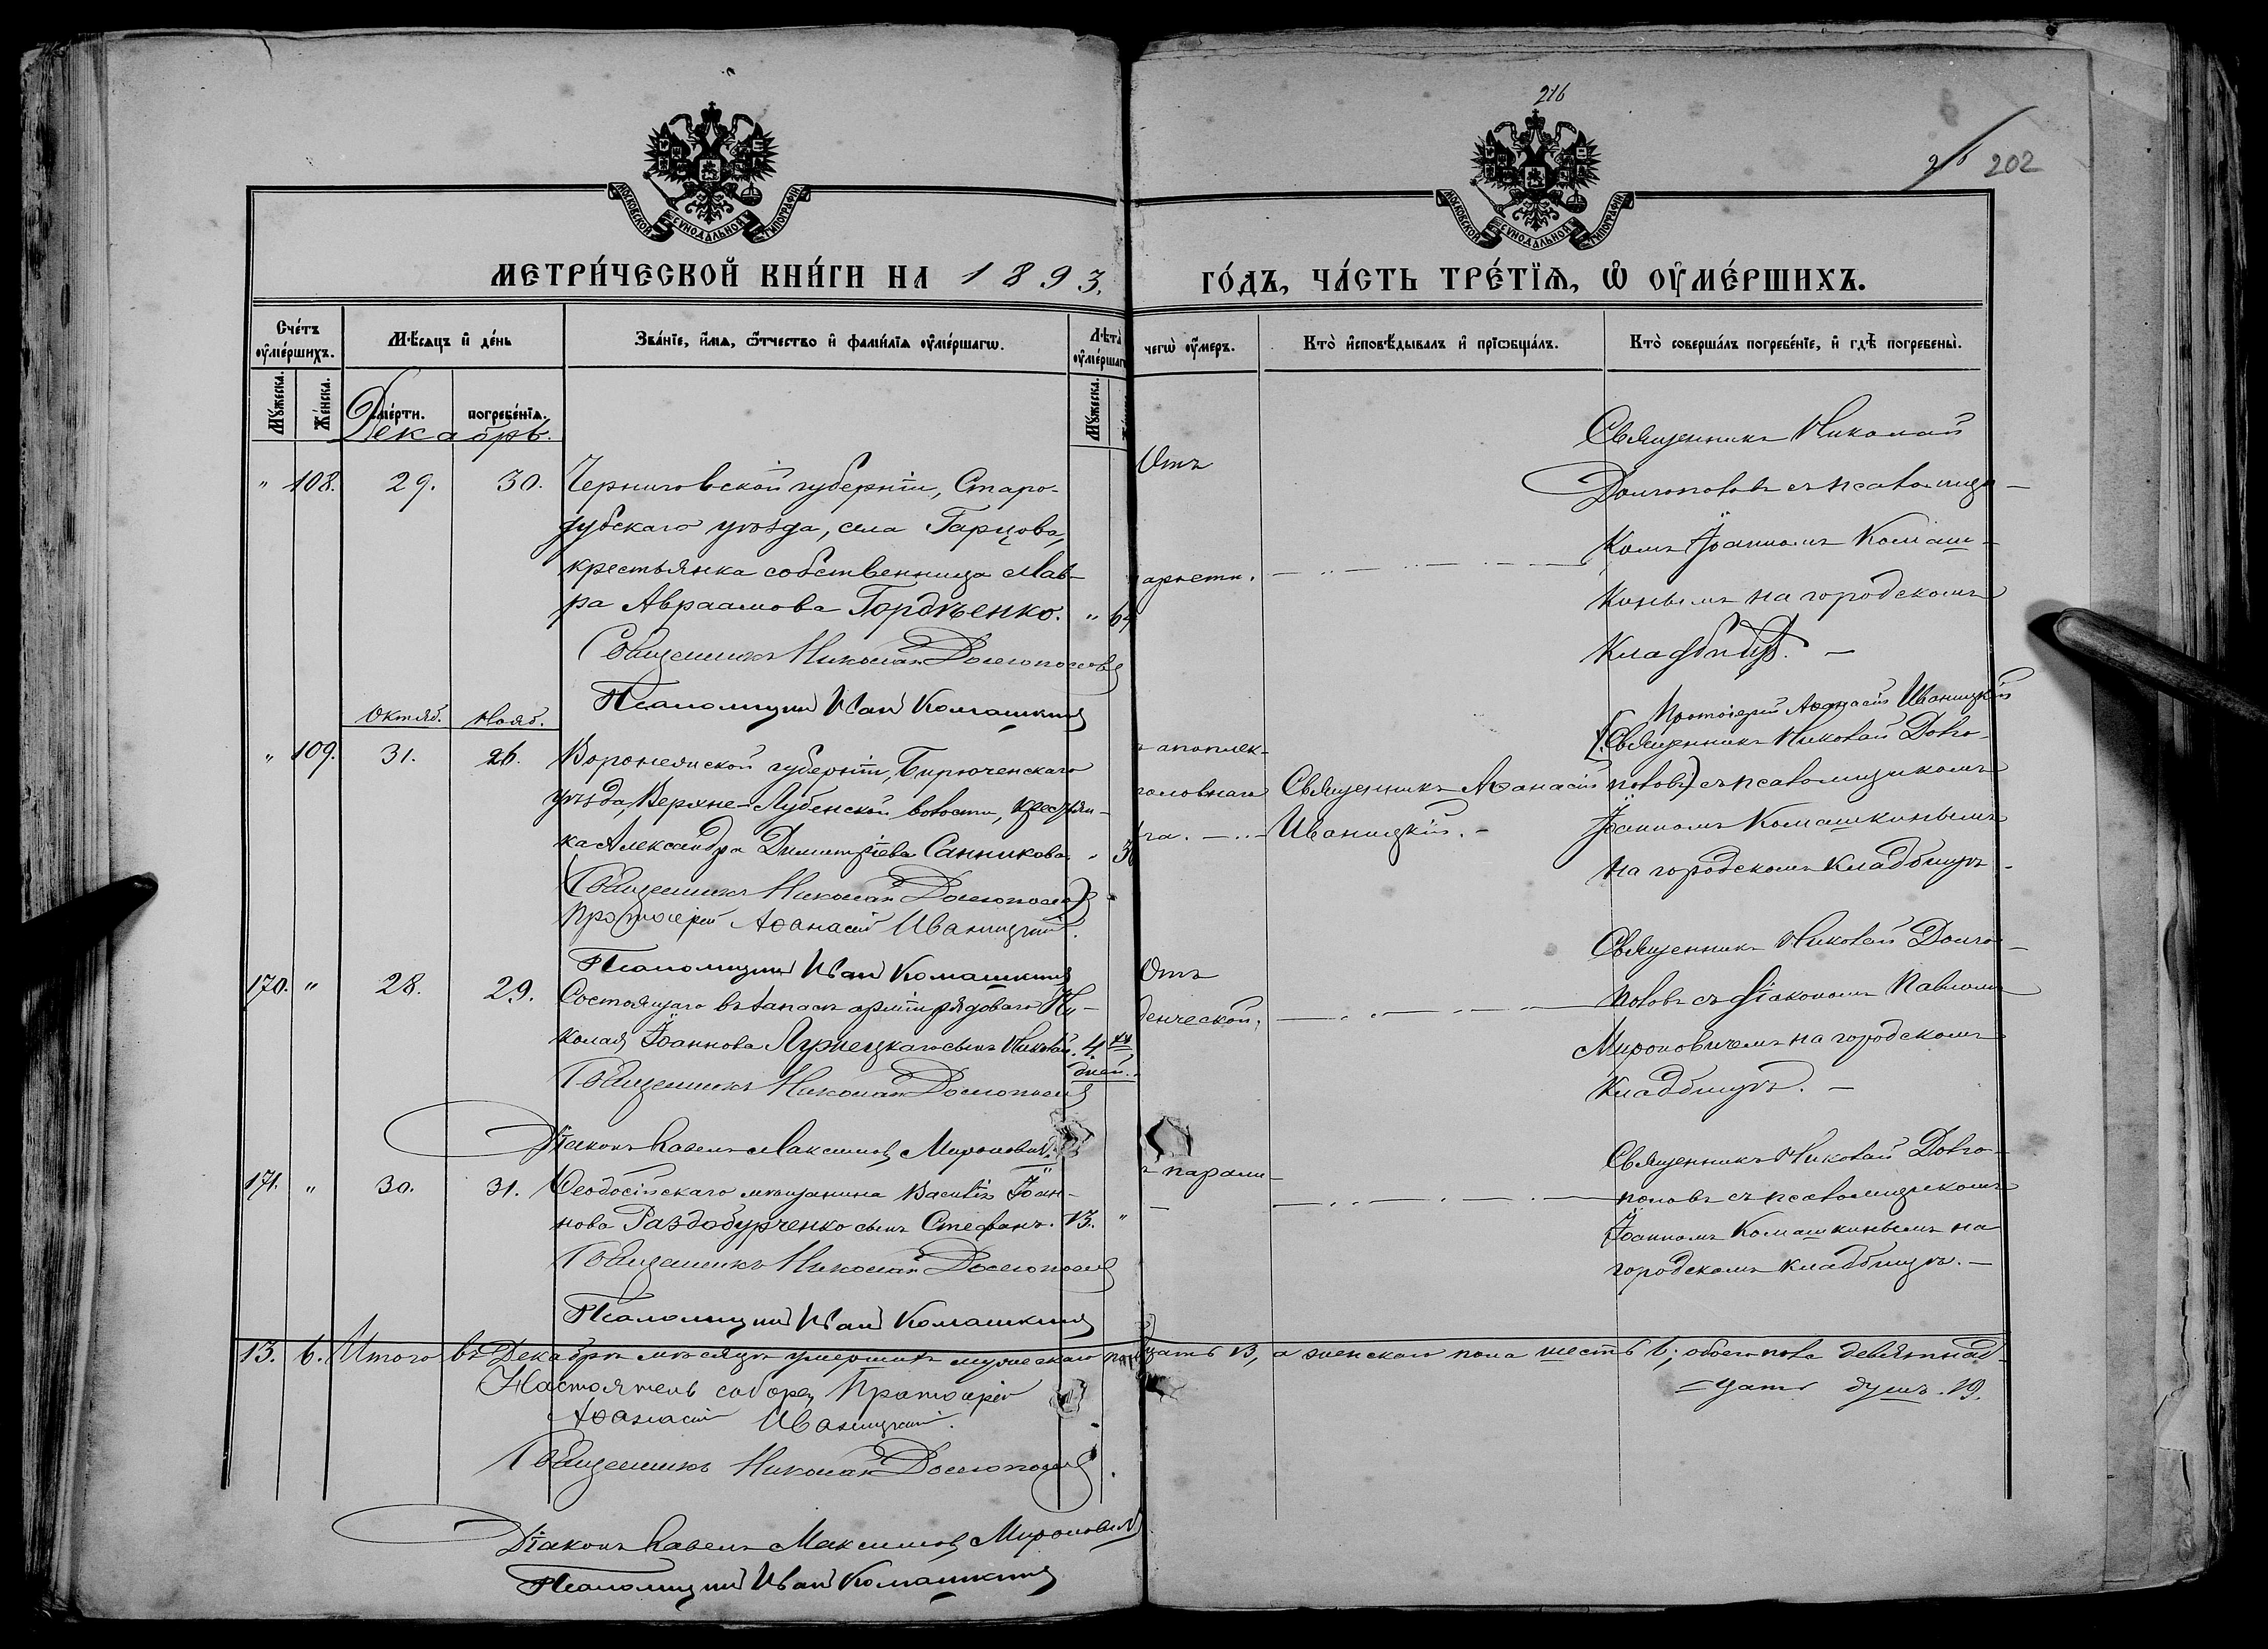 216
216 202
МОСКОВСКОЙ СѴНОДАЛЬНОЙ ТИПОГРАФІИ
МОСКОВСКОЙ СѴНОДАЛЬНОЙ ТИПОГРАФІИ
МЕТРИ́ЧЕСКОЙ КНИ́ГИ НА 1893. ГО́ДЪ, ЧА́СТЬ ТРЕ́ТІѦ, Ѡ ОУМЕ́РШИХЪ.
Сче́тъ оуме́ршихъ.
Мꙋ́жеска.
Же́нска.
Мѣ́сѧцъ и де́нь
сме́рти.
погребе́нїѧ.
Зва́нїе, и́мѧ, ѿчество и фами́лїѧ оуме́ршагѡ.
Лѣта̀ оуме́ршагѡ
Мꙋ́жеска.
чегѡ̀ оу́меръ.
Кто̀ исповѣ́дывалъ и прїѡбща́лъ.
Кто̀ соверша́лъ погребе́нїе, и гдѣ̀ погребены̀.
Декабрь.
" 108. 29. 30. Черниговской губерніи, Старо-
дубскаго уѣзда, села Гарцова,
крестьянка собственница Мав-
ра Авраамова Гордѣенко. " 64
Священникъ Николай Долгополовъ
Псаломщикъ Иван Комашкинъ
Отъ
Священникъ Николай
Долгополовъ съ псаломщи-
комъ Іоанномъ Комаш-
кинымъ на городскомъ
кладбищѣ. —
Октяб. Нояб.
" 109. 31. 26. Воронежской губерніи, Бирюченскаго
уѣзда, Верхне-Лубенской волости, крестьян-
ка Александра Димитріева Санникова. "
(Священникъ Николай Долгополовъ)
Протоіерей Аѳанасій Иваницкій.
Псаломщикъ Иван Комашкинъ
ъ апоплек-
головнаго
Священникъ Аѳанасій
Иваницкій. -
Протоіерей Аѳанасій Иваницкій
(Священникъ Николай Долго-
половъ) съ псаломщикомъ
Іоанномъ Комашкинымъ
на городскомъ кладбищѣ -
170. " 28. 29. Состоящаго въ запасѣ арміи рядоваго Ни-
колая Іоаннова Лурнецкаго сынъ Николай. 4
дней.
Священникъ Николай Долгополовъ
Діаконъ Павелъ Максимовъ Мироновичъ
Отъ
денческой.
Священникъ Николай Долго-
половъ съ діакономъ Павломъ
Мироновичемъ на городскомъ
кладбищѣ. —
171. " 30. 31. Ѳеодосійскаго мѣщанина Василія Іоан-
нова Раздобурченко сынъ Стефанъ. 13. "
Священникъ Николай Долгополовъ
Псаломщикъ Иван Комашкинъ
ъ парали-
Священникъ Николай Долго-
половъ съ псаломщикомъ
Іоанномъ Комашкинымъ на
городскомъ кладбищѣ. —
13. 6. Итого въ Декабрѣ мѣсяцѣ умершихъ мужескаго цать 13, а женскаго пола шесть 6; обоего пола девятнад-
цать душъ. 19.
Настоятель собора, Протоіерей
Аѳанасій Иваницкій.
Священникъ Николай Долгополовъ
Діаконъ Павелъ Максимовъ Мироновичъ
Псаломщикъ Иван Комашкинъ